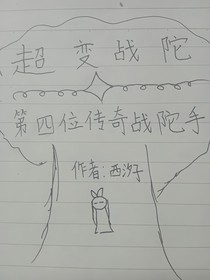 超变战陀
第四位传奇战陀手
作者:西汐子